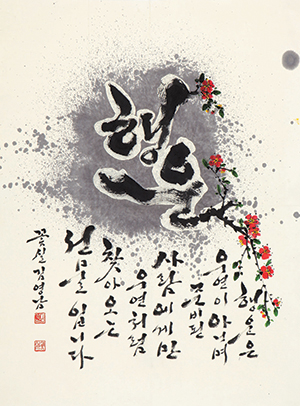 행운
행운은
우연이 아니며
준비된
사람에게만
우연처럼
찾아오는
선물입니다